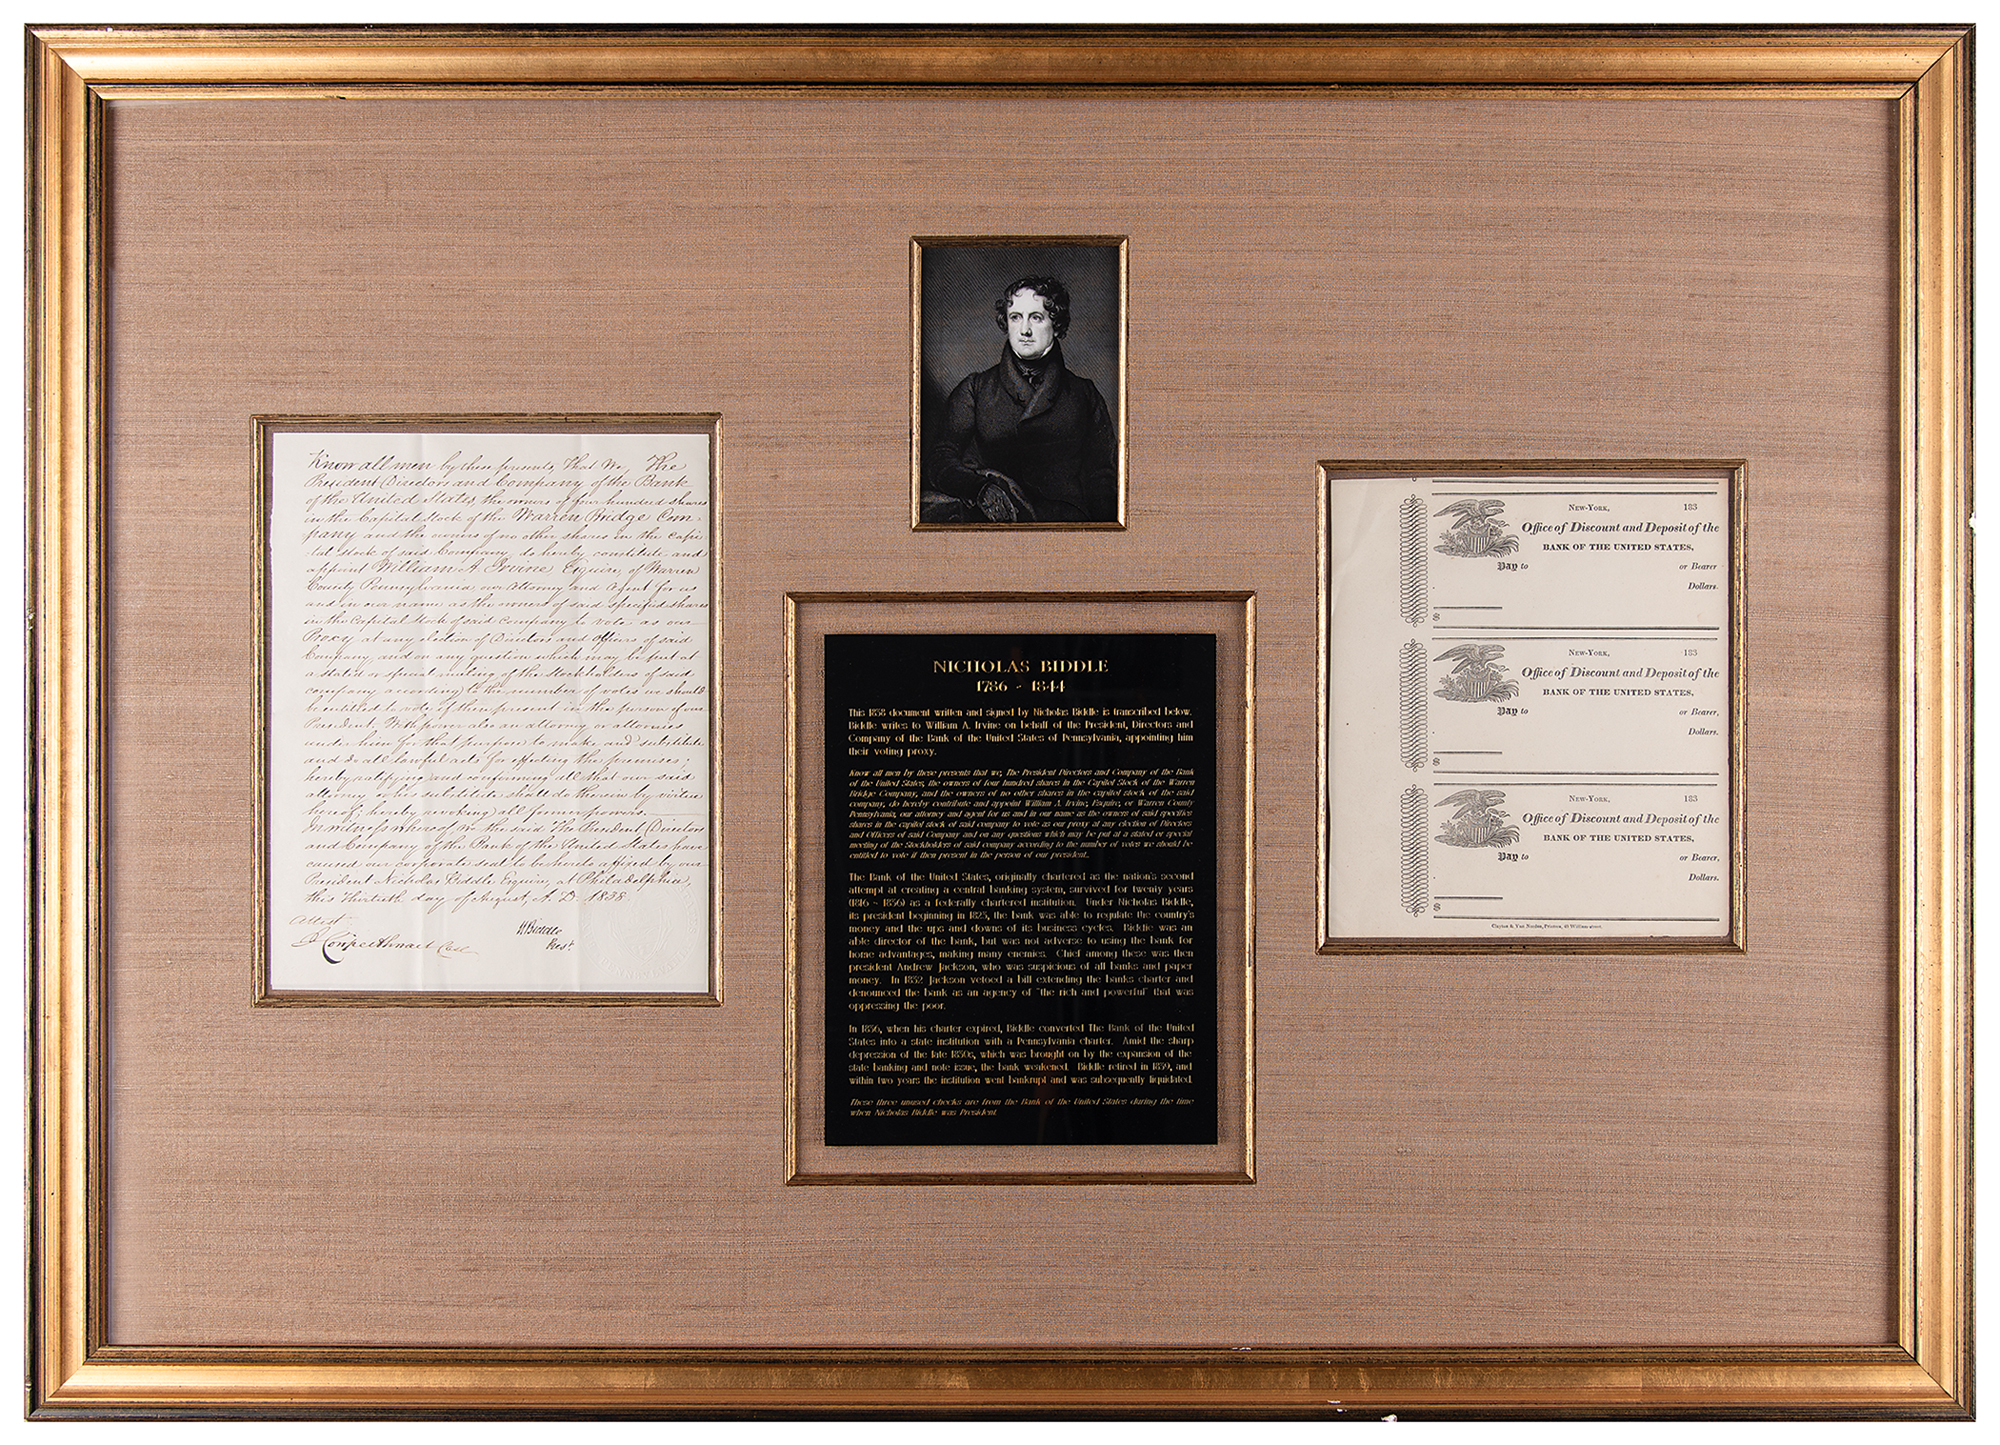 Know all men by these presents, That We, The
President Directors and Company of the Bank
of the United States, the owners of four hundred shares
in the Capital Stock of the Warren Bridge Com-
pany and the owners of no other shares in the Capi-
tal stock of said Company, do hereby constitute and
appoint William A. Irvine, Esquire, of Warren
County Pennsylvania, our Attorney and Agent for us
and in our name as the owners of said specified shares
in the Capital Stock of said Company to vote as our
Proxy at any election of Directors and officers of said
Company, and on any question which may be put at
a stated or special meeting of the Stockholders of said
company according to the number of votes we should
be entitled to vote if then present in the person of our
President, With power also an attorney or attornies
under him for that purpose to make and substitute
and do all lawful acts for effecting the premises;
hereby ratifying and confirming all that our said
attorney or his substitute shall do therein by virtue
hereof; hereby revoking all former powers.
In witness whereof We the said The President Directors
and Company of the Bank of the United States have
caused our corporate seal to be hereto affixed by our
President Nicholas Biddle Esquire, at Philadelphia,
this thirtieth day of August, A. D. 1838.
Attest
N Biddle
Prest.
Cowperthwait Cas.
NICHOLAS BIDDLE
1786 - 1844
This 1838 document written and signed by Nicholas Biddle is transcribed below.
Biddle writes to William A. Irvine on behalf of the President, Directors and
Company of the Bank of the United States of Pennsylvania, appointing him
their voting proxy.
Know all men by these presents that we, The President Directors and Company of the Bank
of the United States, the owners of four hundred shares in the Capitol Stock of the Warren
Bridge Company, and the owners of no other shares in the capitol stock of the said
company, do hereby contribute and appoint William A. Irvine, Esquire, or Warren County
Pennsylvania, our attorney and agent for us and in our name as the owners of said specifies
shares in the capitol stock of said company to vote as our proxy at any election of Directors
and Officers of said Company and on any questions which may be put at a stated or special
meeting of the Stockholders of said company according to the number of votes we should be
entitled to vote if then present in the person of our president...
The Bank of the United States, originally chartered as the nation's second
attempt at creating a central banking system, survived for twenty years
(1816 - 1836) as a federally chartered institution. Under Nicholas Biddle,
its president beginning in 1823, the bank was able to regulate the country's
money and the ups and downs of its business cycles. Biddle was an
able director of the bank, but was not adverse to using the bank for
home advantages, making many enemies. Chief among these was then
president Andrew Jackson, who was suspicious of all banks and paper
money. In 1832 Jackson vetoed a bill extending the banks charter and
denounced the bank as an agency of "the rich and powerful" that was
oppressing the poor.
In 1836, when his charter expired, Biddle converted The Bank of the United
States into a state institution with a Pennsylvania charter. Amid the sharp
depression of the late 1830s, which was brought on by the expansion of the
state banking and note issue, the bank weakened. Biddle retired in 1839, and
within two years the institution went bankrupt and was subsequently liquidated.
These three unused checks are from the Bank of the United States during the time
when Nicholas Biddle was President.
New-York, 183
Office of Discount and Deposit of the
BANK OF THE UNITED STATES,
Pay to or Bearer
Dollars.
$
New-York, 183
Office of Discount and Deposit of the
BANK OF THE UNITED STATES,
Pay to or Bearer,
Dollars.
$
New-York, 183
Office of Discount and Deposit of the
BANK OF THE UNITED STATES,
Pay to or Bearer,
Dollars.
$
Clayton & Van Norden, Printers, 49 William-street.